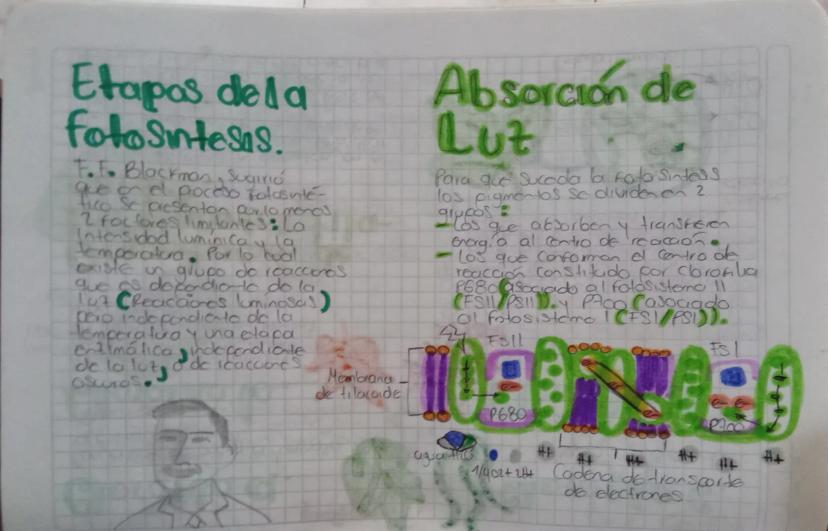 Etapas de la
fotosintesis.
F.F. Blackman, sugirió
que en el proceso fotosinté-
tico se presentan por lo menos
2 factores limitantes: La
Intensidad lumínica y la
temperatura. Por lo cual
existe un grupo de reacciones
que es dependiente de la
luz (Reacciones luminosas)
pero independiente de la
temperatura y una etapa
enzimática, independiente
de la luz, o de reacciones
oscuras.
Absorción de
Luz
Para que suceda la fotosintesis
los pigmentos se dividen en 2
grupos:
- Los que absorben y transfieren
energía al centro de reacción.
- Los que conforman el centro de
reacción constituido por clorofila
P680 (asociado al fotosistema II
(FSII/PSII)). y P700 (asociado
al fotosistema I (FSI/PSI)).
FSII
FSI
Membrana
de tilacoide
P680
P700
agua
H+
H+
H+
H+
H+
H+
Cadena de transporte
de electrones